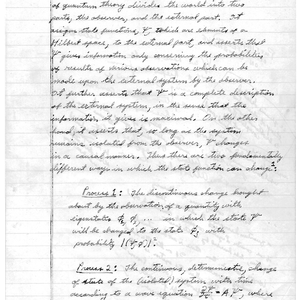 of quantum theory divides the world into two
parts, the observer, and the external part. It
assigns state functions, ψ, which are elements of a
Hilbert space, to the external part, and asserts that
ψ gives information only concerning the probabilities
of results of various observations which can be
made upon the external system by the observer.
It further asserts that ψ is a complete description
of the external system, in the sense that the
information it gives is maximal. On the other
hand, it asserts that so long as the system
remains isolated from the observer, ψ changes
in a causal manner. Thus there are two fundamentally
different ways in which the state function can change:
Process 1: The discontinuous change brought
about by the observation of a quantity with
eigenstates φ₁, φ₂, ... in which the state ψ
will be changed to the state φⱼ with
probability |(ψ,φⱼ)|².
Process 2: The continuous, deterministic, change
of state of the (isolated) system with time
according to a wave equation ∂ψ/∂t = Aψ, where